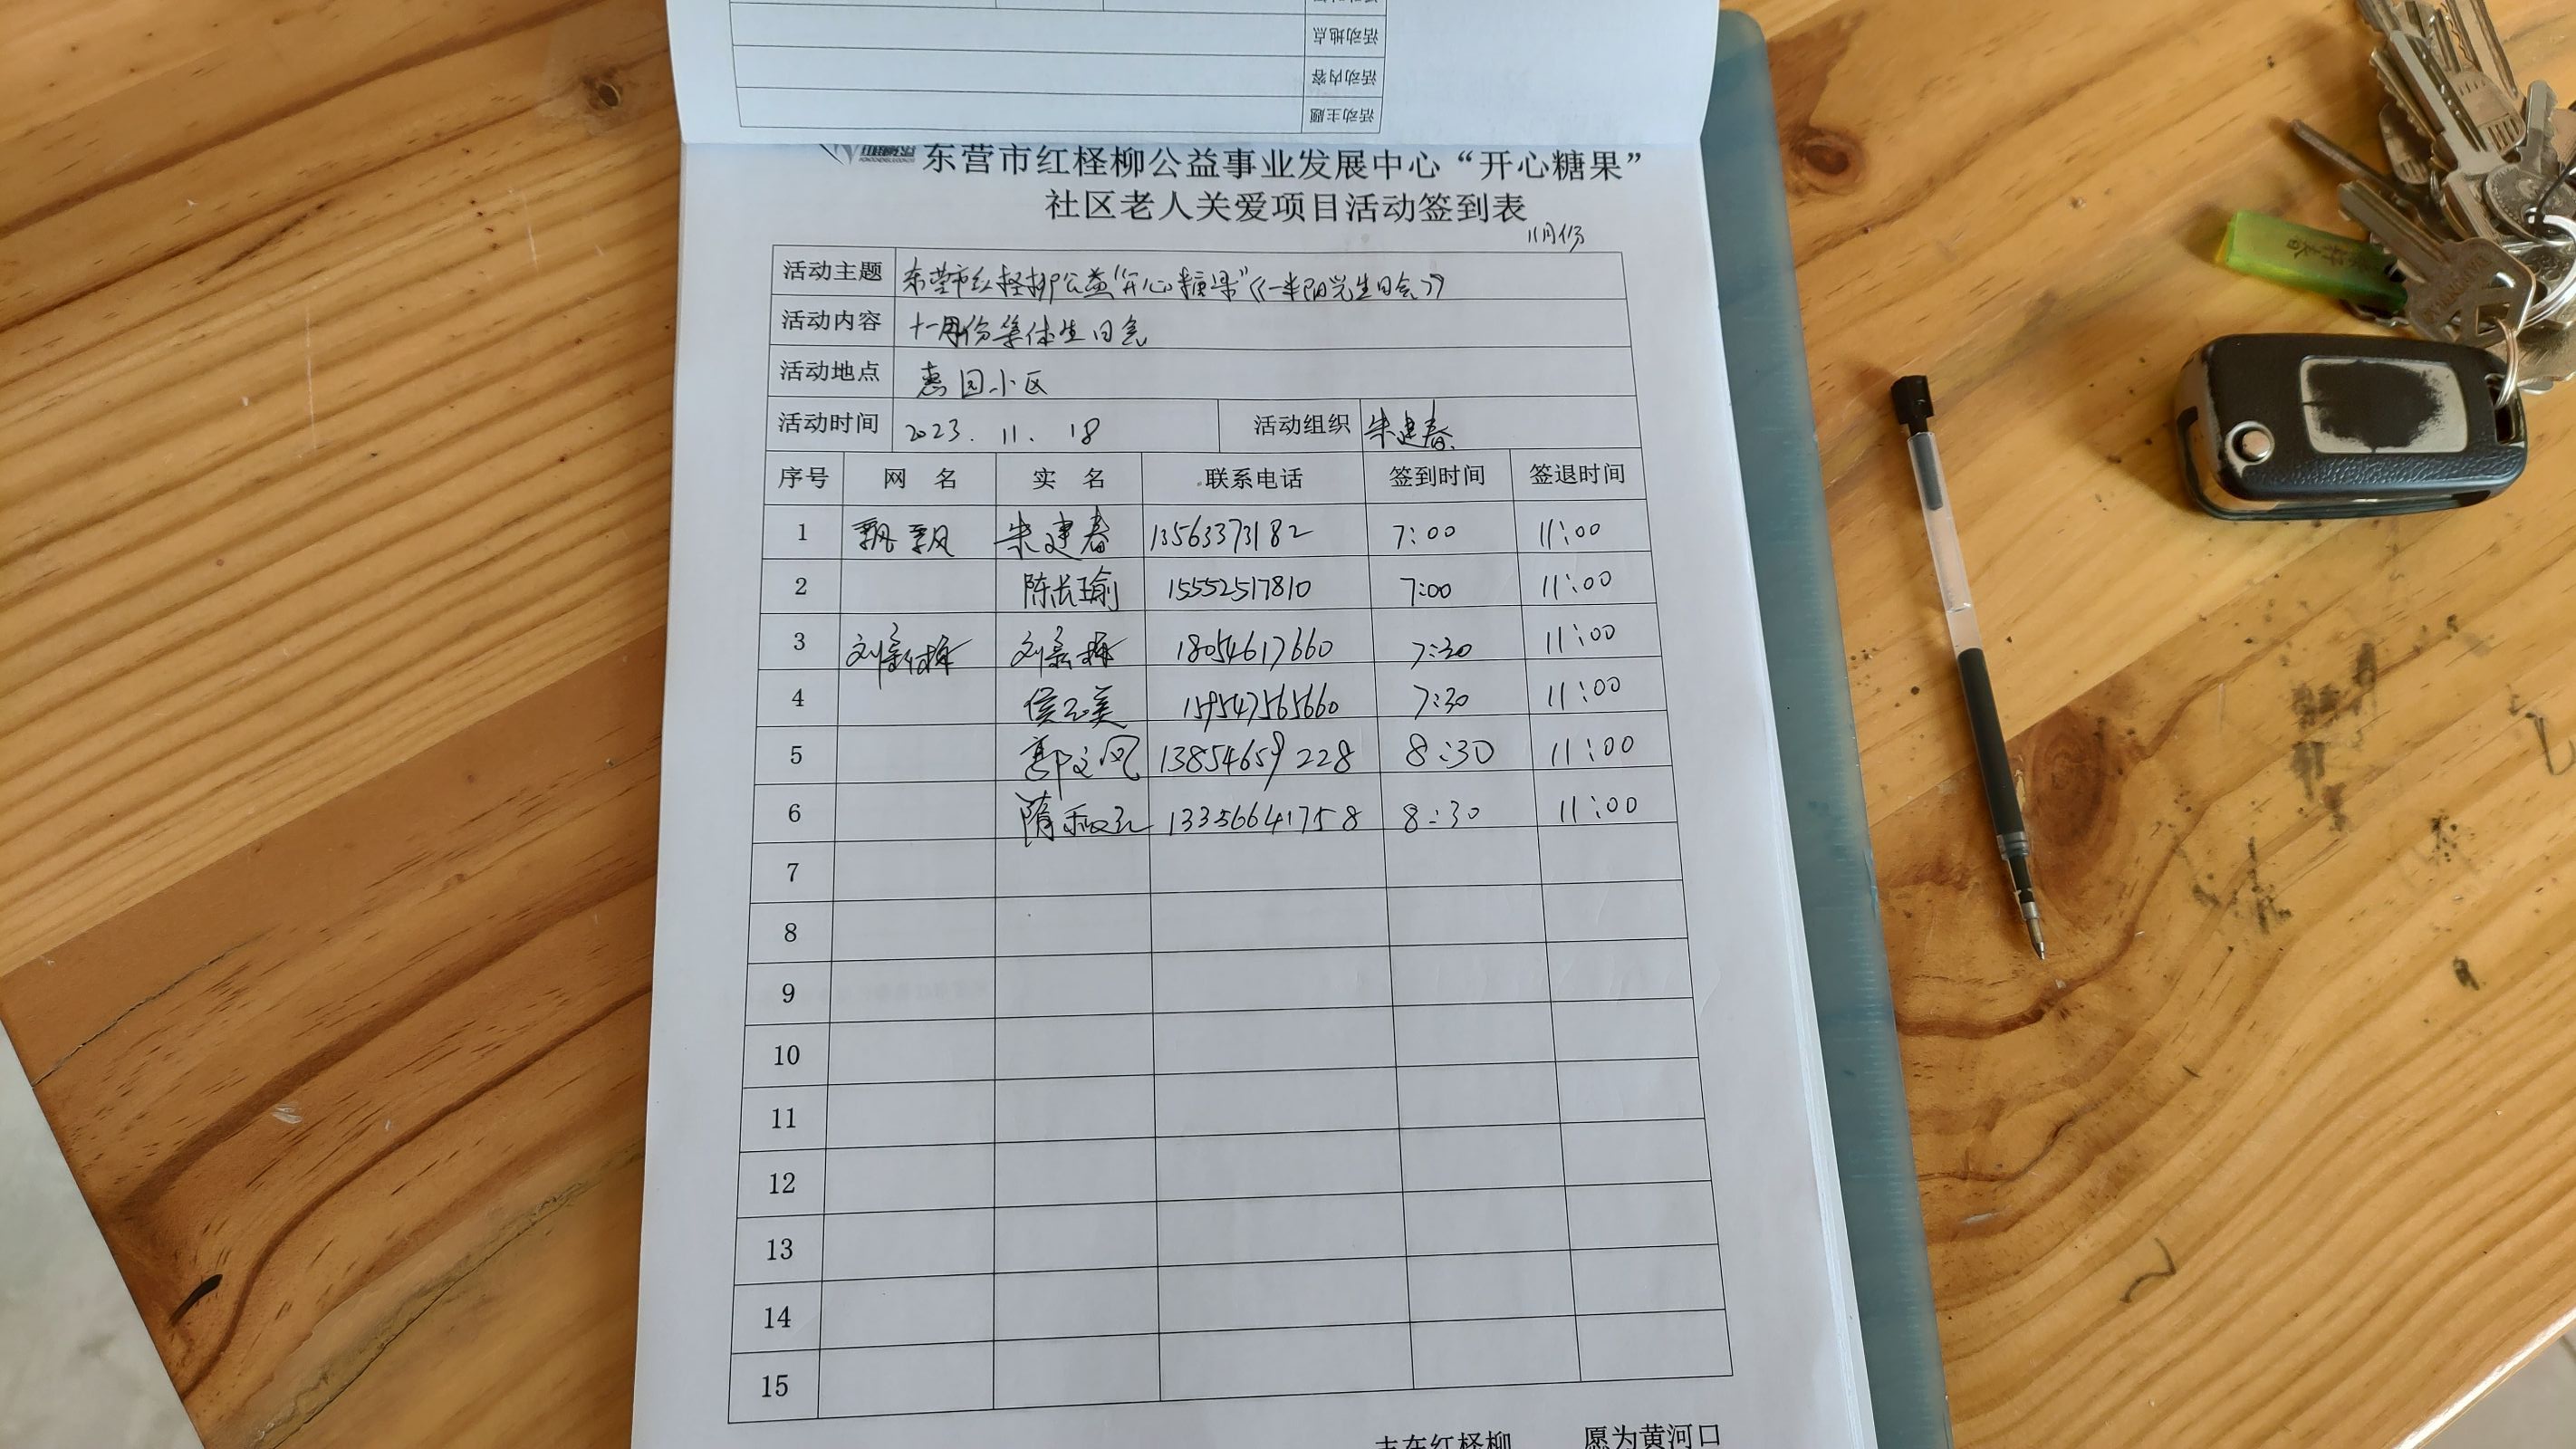 活动地点
活动内容
活动主题
东营市红柽柳公益事业发展中心“开心糖果”
社区老人关爱项目活动签到表
11月份
活动主题 东营市红柽柳公益“开心糖果”《一半阳光生日会》
活动内容 十一月份集体生日会
活动地点 惠园小区
活动时间 2023. 11. 18 活动组织 朱建春
序号 网 名 实 名 联系电话 签到时间 签退时间
1 飘飘 朱建春 13563373182 7:00 11:00
2 陈长瑜 15552517810 7:00 11:00
3 刘新梅 刘新梅 18054617660 7:30 11:00
4 侯玉美 15954756560 7:30 11:00
5 郭文凤 13854659228 8:30 11:00
6 隋 13356641758 8:30 11:00
7
8
9
10
11
12
13
14
15
志在红柽柳 愿为黄河口